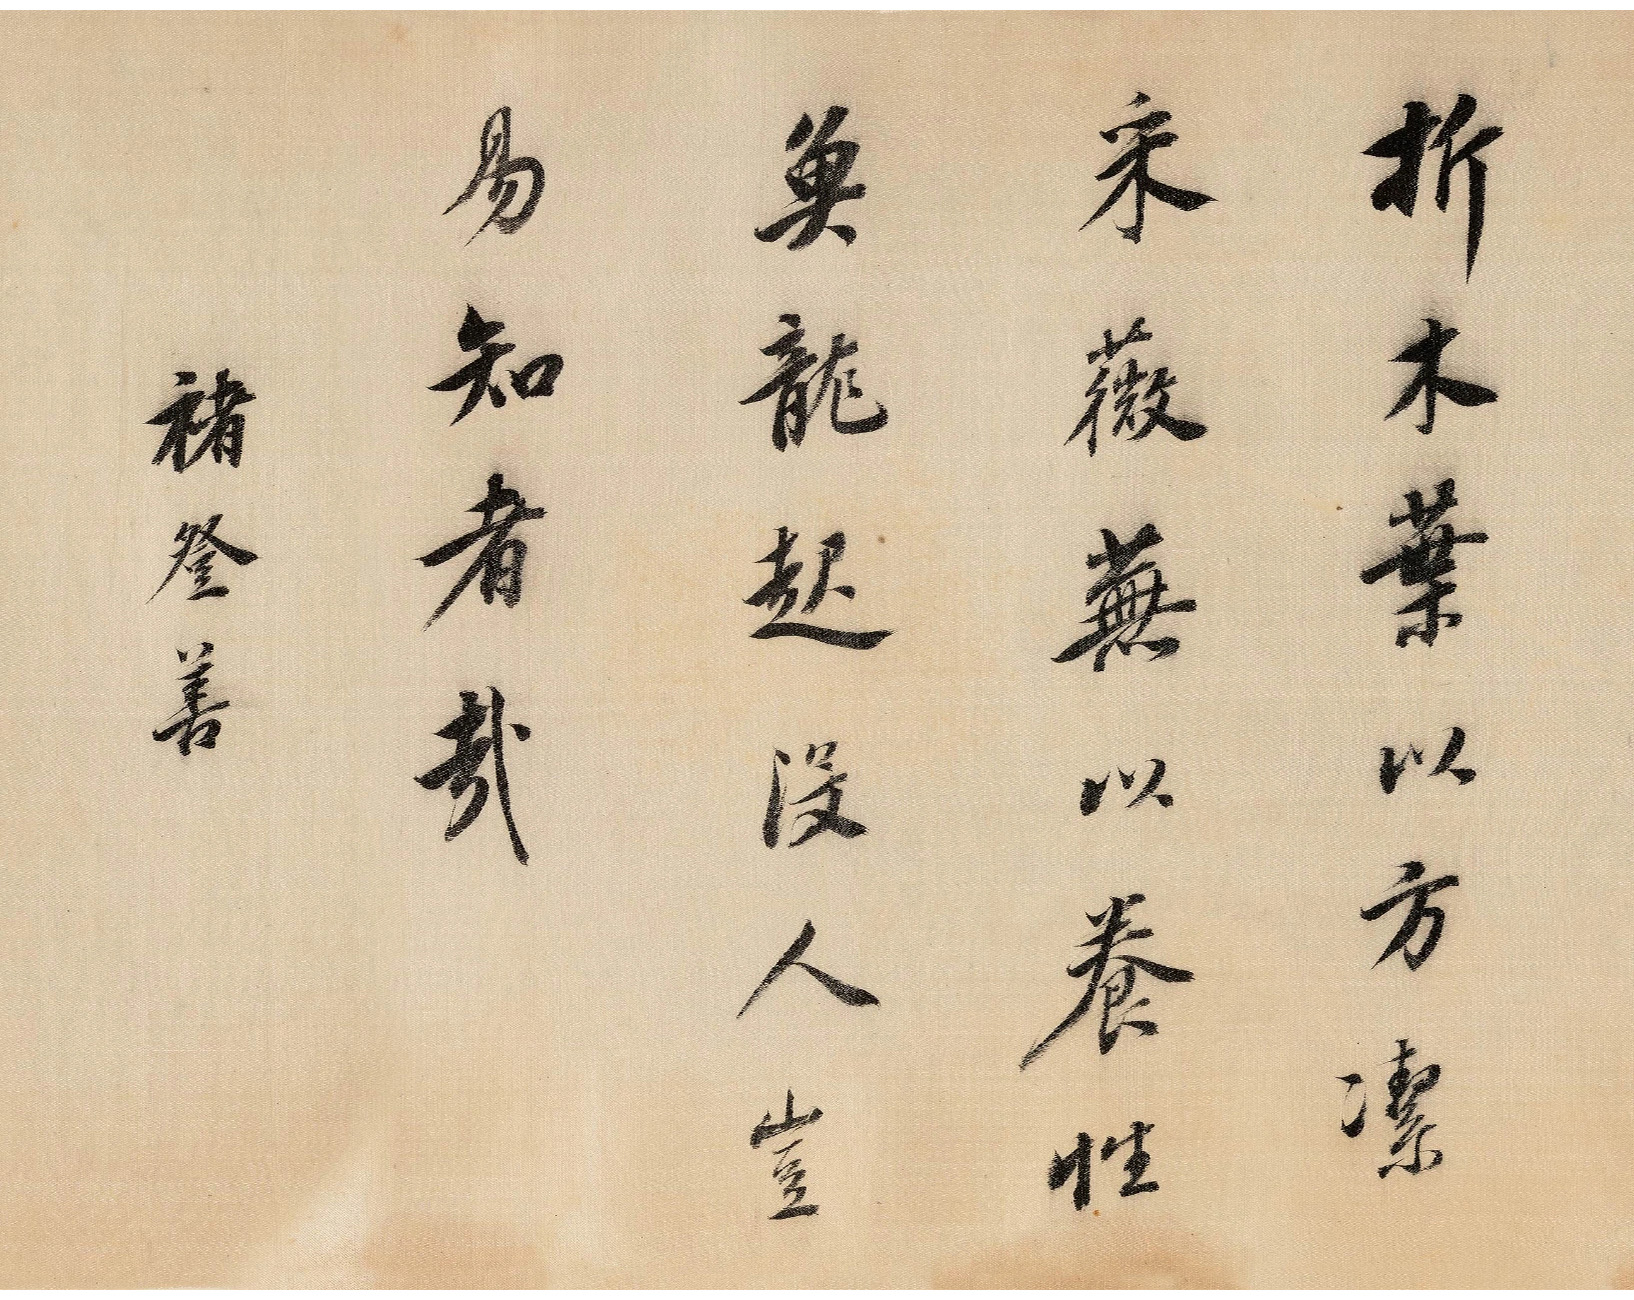 折木葉以方潔
采薇蕪以養性
魚龍起没人豈
易知者哉
褚登善